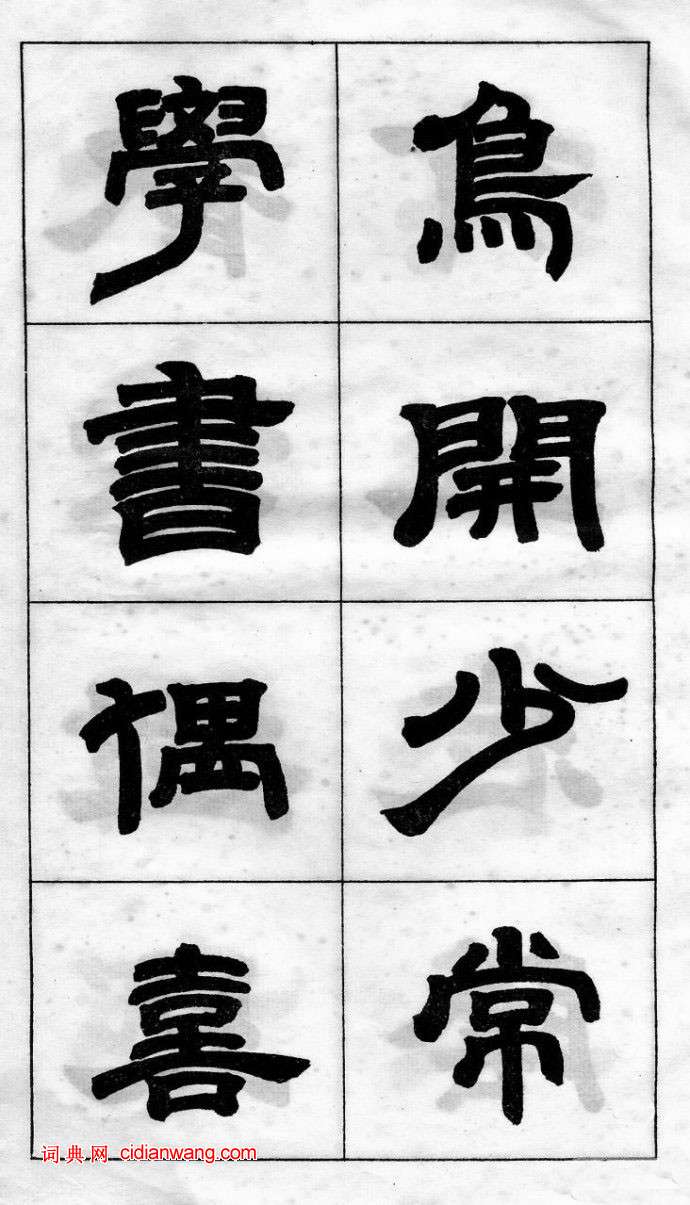 鳥開少常
學書偶喜
词典网 cidianwang.com